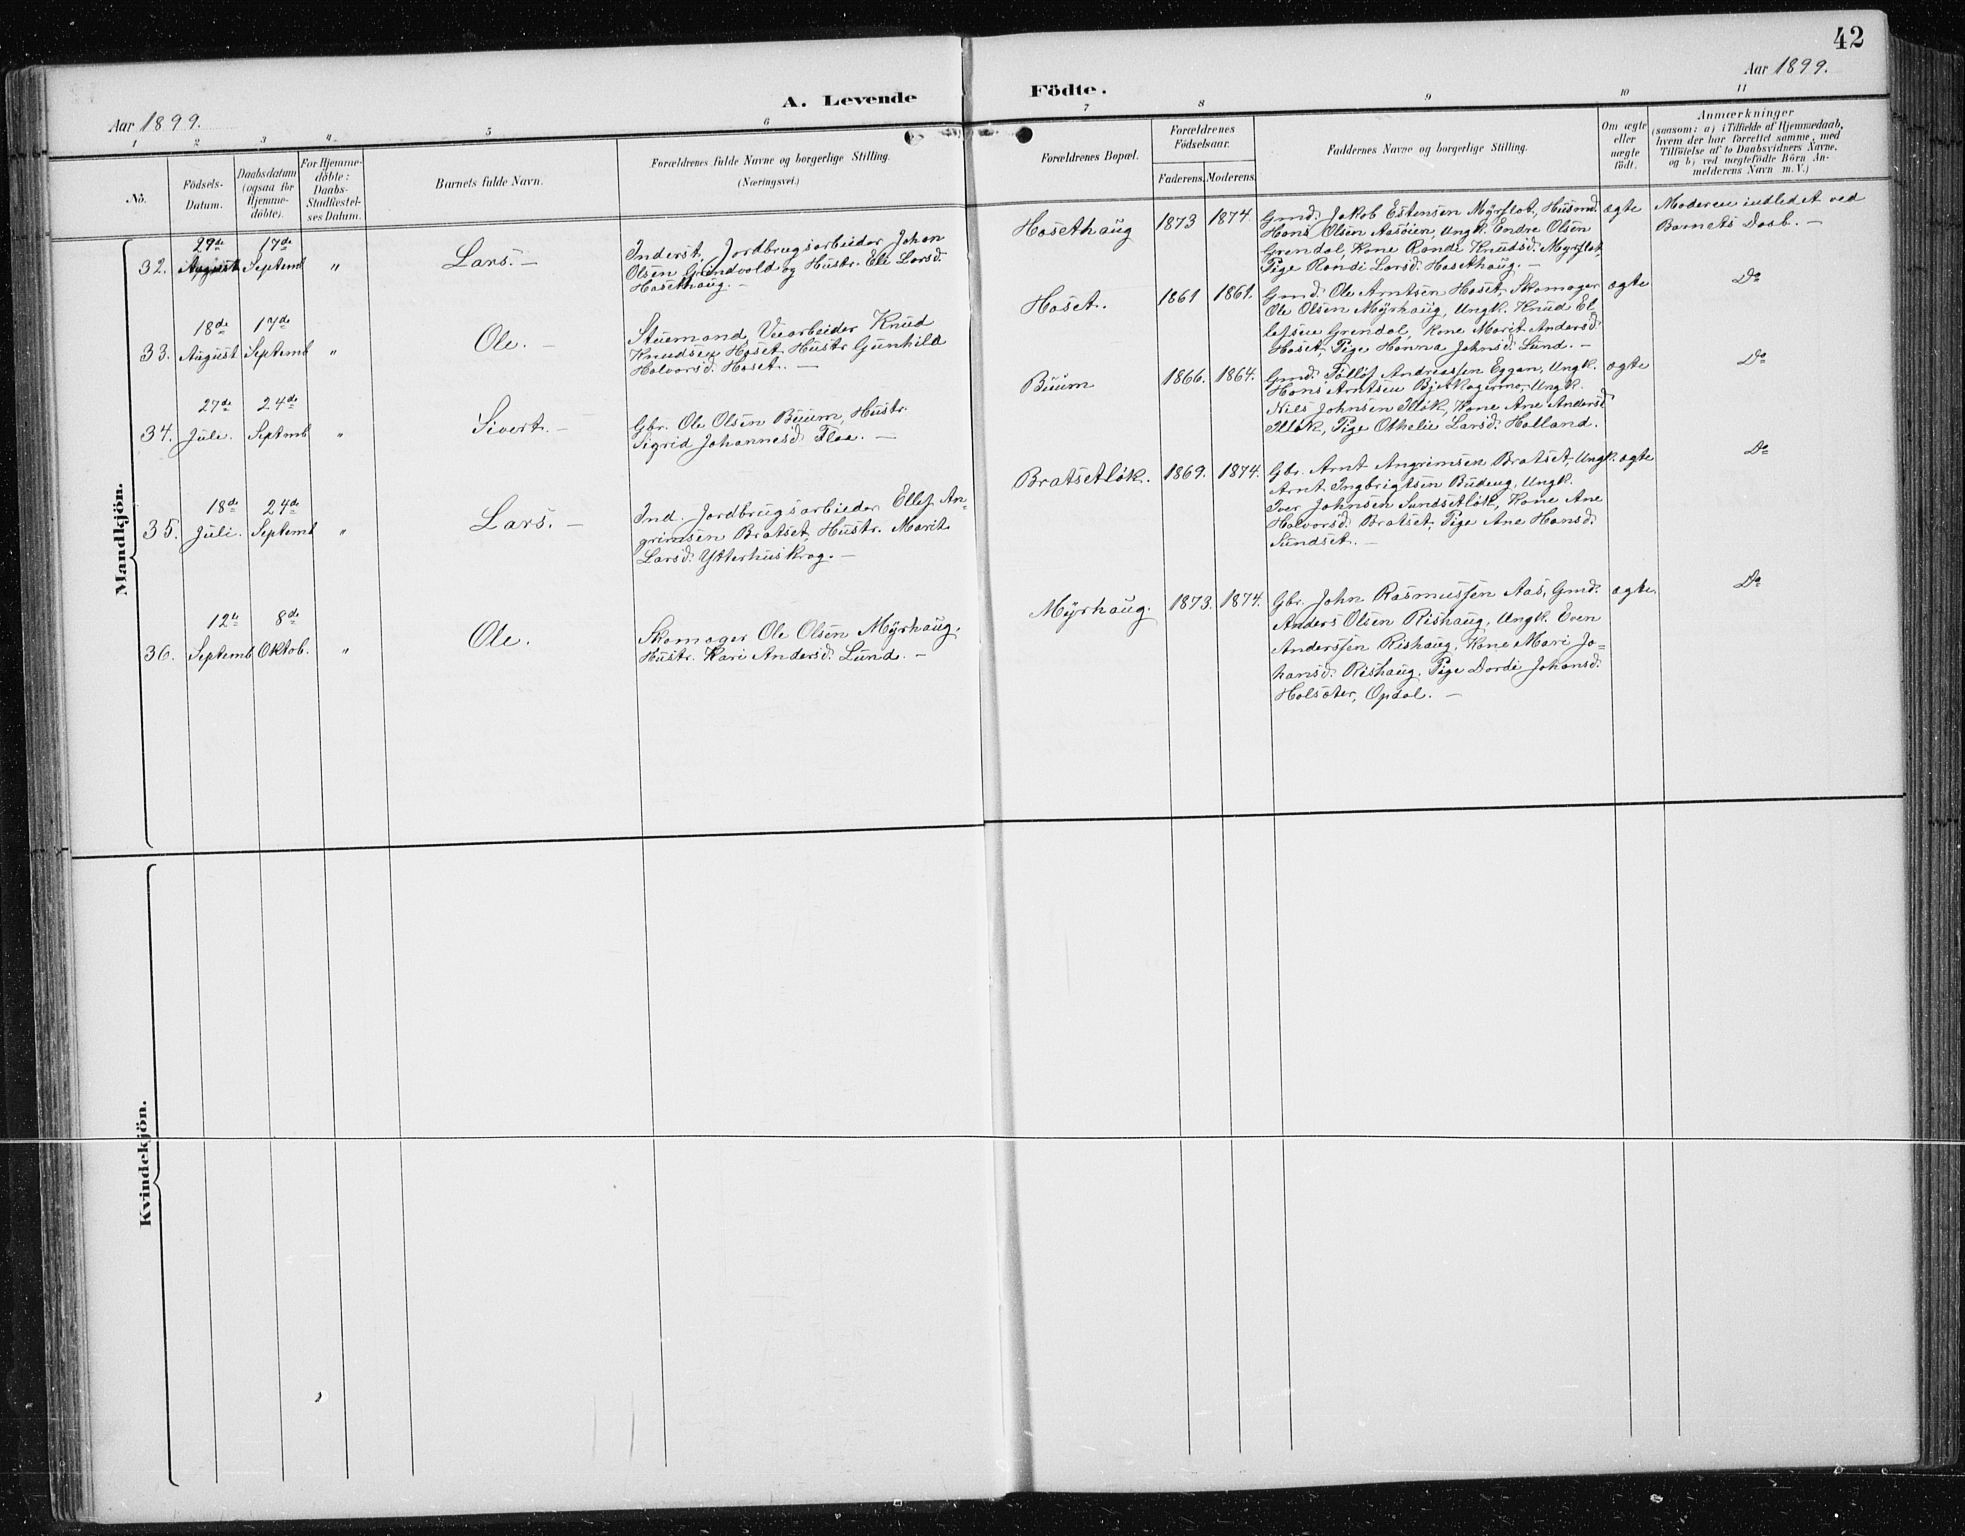 42
Aar 1899.
A. Levende
Födte.
Aar 1899.
1
2
3
4.
5
6
7
8
9
10
11
No.
Födsels-
Datum.
Daabsdatum
(ogsaa for
Hjemme-
döbte).
For Hjemme-
döbte:
Daabs-
Stadfæstel-
ses Datum.
Barnets fulde Navn.
Forældrenes fulde Navne og borgerlige Stilling.
(Næringsvei.)
Forældrenes Bopæl.
Forældrenes
Födselsaar.
Faderens.
Moderens.
Faddernes Navne og borgerlige Stilling.
Om ægte
eller
uægte
födt.
Anmærkninger
(saasom: a) i Tilfælde af Hjemmedaab,
hvem der har forrettet samme, med
Tilföielse af to Daabsvidners Navne,
og b) ved uægtefödte Börn An-
melderens Navn m. V.)
Mandkjön.
32.
29de
August
17de
Septemb
"
Lars. —
Inderst, Jordbrugsarbeider Johan
Olsen Grindvold og Hustr. Eli Larsd.
Hosethaug. —
Hosethaug
1873
1874.
Gmd. Jakob Estensen Myrflot, Husmd.
Hans Olsen Aasöien, Ungk. Endre Olsen
Grendal, Kone Randi Knudsd. Myrflot,
Pige Randi Larsd. Hosethaug. —
ægte
Moderen indledet ved
Barnets Daab. —
33.
18de
August
17de
Septemb
"
Ole. —
Stuemand, Veiarbeider Knud
Knudsen Hoset, Hustr Gunhild
Halvorsd. Hoset. —
Hoset.
1861
1861.
Gmd. Ole Arntsen Hoset, Skomager
Ole Olsen Myrhaug, Ungk. Knud El-
lefsen Grendal, Kone Marit Andersd.
Hoset, Pige Hanna Johnsd. Lund. —
ægte
Do
34.
27de
Juli.
24de
Septmb
"
Sivert. —
Gbr. Ole Olsen Buum, Hustr.
Sigrid Johannesd. Flaa. —
Buum
1866.
1864.
Gmd. Tollöf Andreassen Eggan, Ungk.
Hans Arntsen Bjerkagermo, Ungk.
Nils Johnsen Illök, Kone Ane Andersd.
Illök, Pige Othelie Larsd. Holland.
ægte
Do
35.
18de
Juli.
24de
Septemb
"
Lars. —
Ind. Jordbrugsarbieder Ellef An-
grimsen Bratset, Hustr. Marit
Larsd. Ytterhuskrog. —
Bratsetlök.
1869.
1874.
Gbr. Arnt Angrimsen Bratset, Ungk.
Arnt Ingbrigtsen Budeng, Ungk.
Iver Johnsen Sundsetlök, Kone Ane
Halvorsd. Bratset, Pige Ane Hansd.
Sundset. —
ægte
Do
36.
12te
Septemb
8de
Oktob.
"
Ole.
Skomager Ole Olsen Myrhaug.
Hustr. Kari Andersd. Lund. —
Myrhaug.
1873.
1874.
Gbr. John Rasmussen Aas, Gmd.
Anders Olsen Rishaug, Ungk. Even
Anderssen Rishaug, Kone Mari Jo-
hansd. Rishaug. Pige Dordi Johansd.
Holsæter, Opdal. —
ægte.
Do
Kvindekjön.